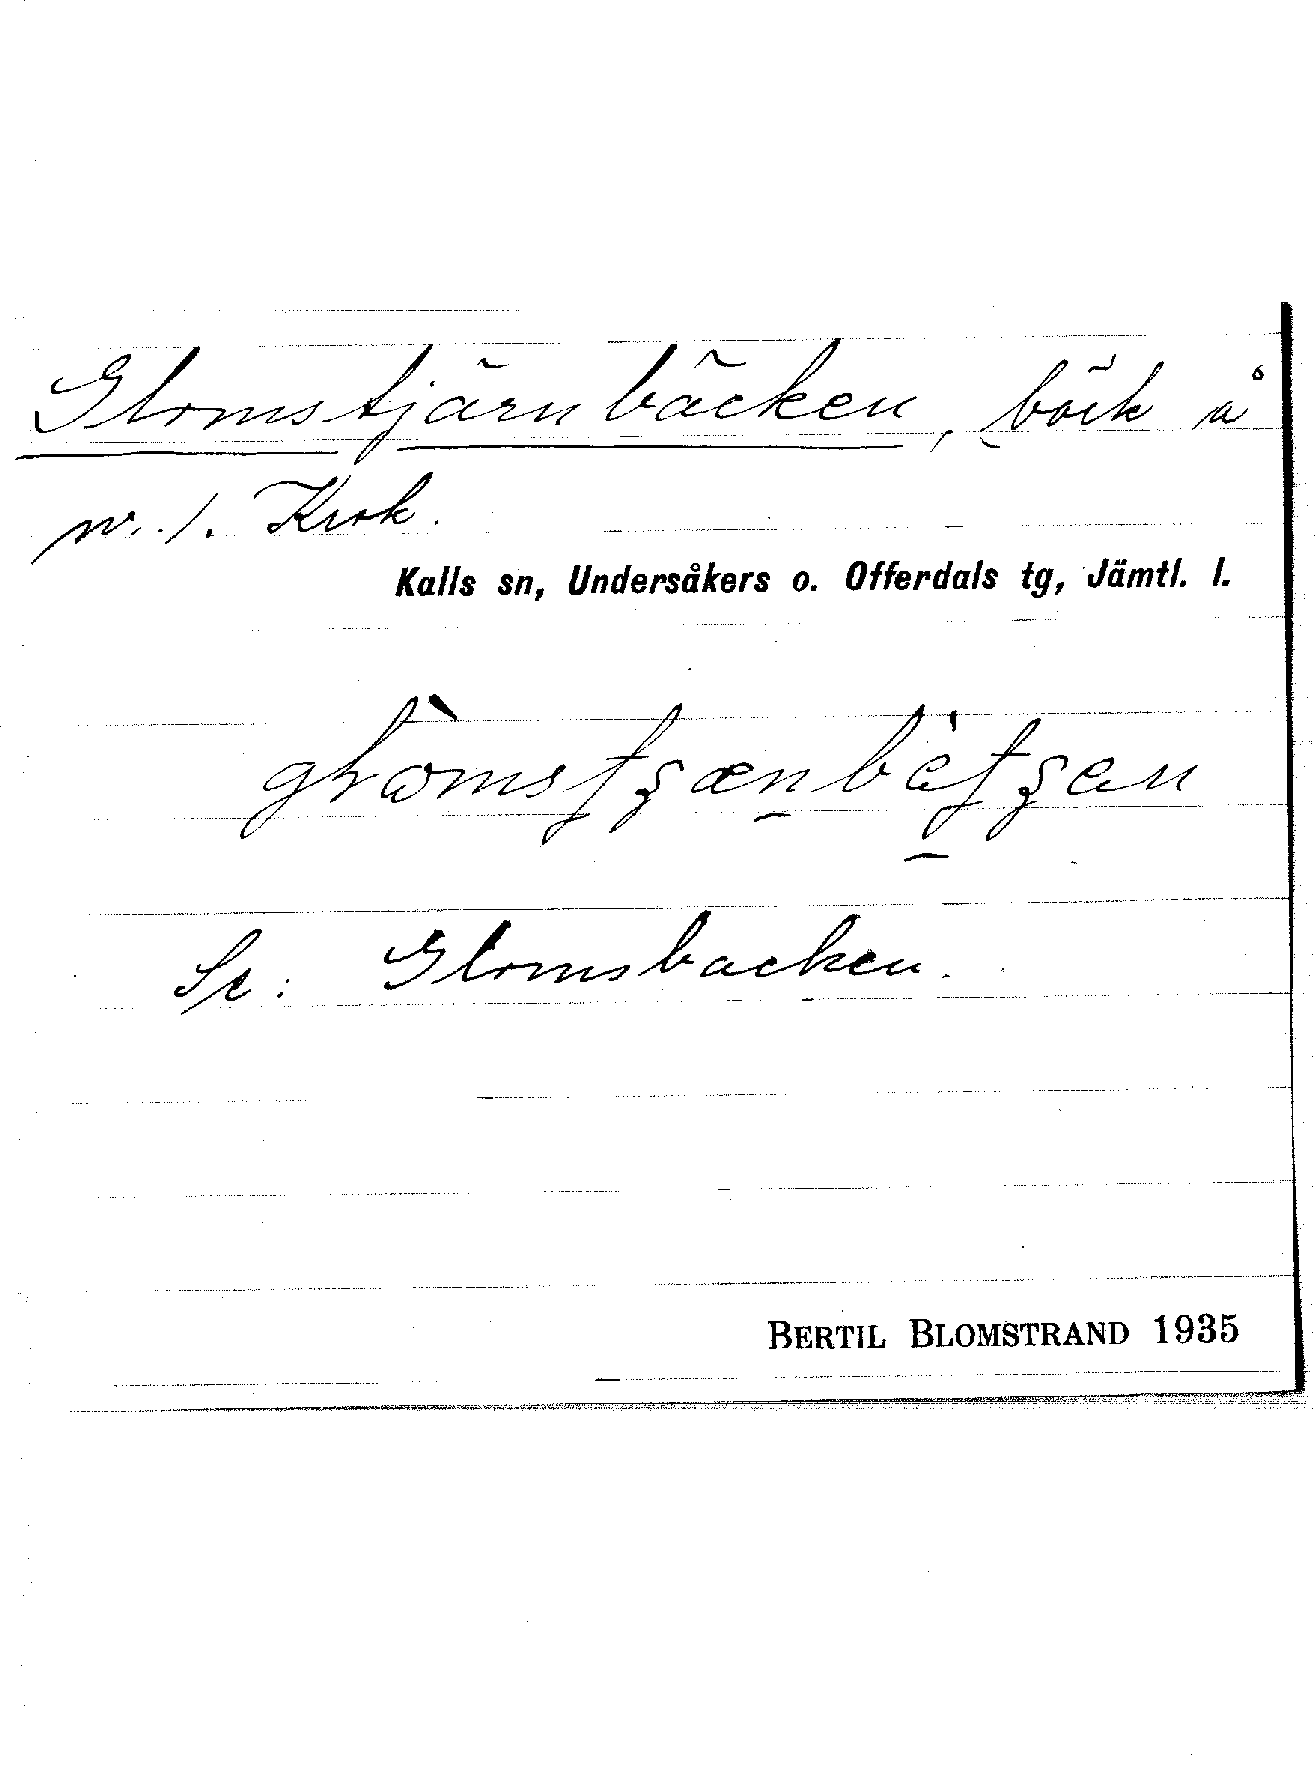 Glomstjärnbäcken, bäck å
nr. 1. Krok.
Kalls sn, Undersåkers o. Offerdals tg, Jämtl. l.
Se: Glomsbacken.
BERTIL BLOMSTRAND 1935